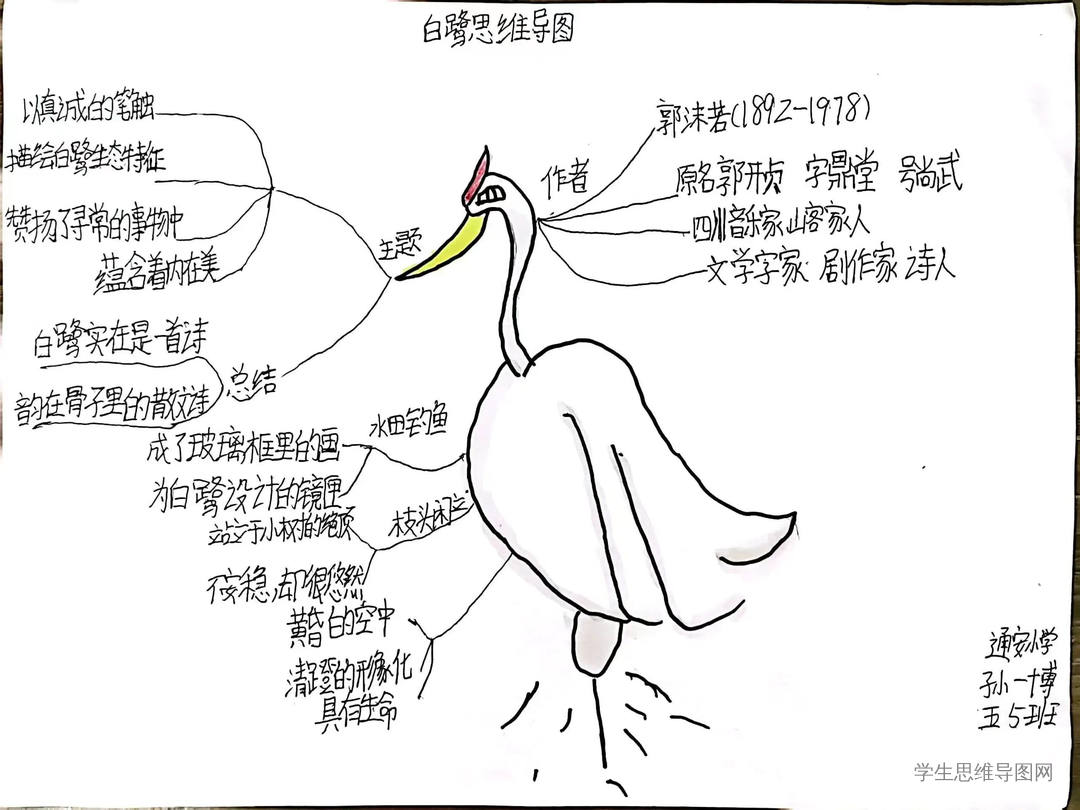 白鹭思维导图
以真诚的笔触
描绘白鹭生态特征
赞扬了寻常的事物中
蕴含着内在美
主题
白鹭实在是一首诗
韵在骨子里的散文诗
总结
作者
郭沫若(1892-1978)
原名郭开贞 字鼎堂 号尚武
四川音乐家山客家人
文学字家 剧作家 诗人
水田钓鱼
成了玻璃框里的画
为白鹭设计的镜匣
枝头闲立
站立于小树的绝顶
不安稳,却很悠然
黄昏的空中
清澄的形象化
具有生命
通安小学
孙一博
五5班
学生思维导图网